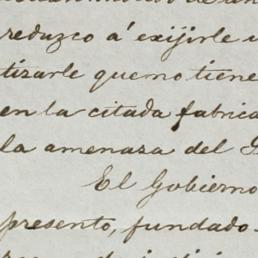 reduzco á exijirle
tizarle que no tiene
en la citada fabrica
la amenaza del
El Gobierno
presento, fundado